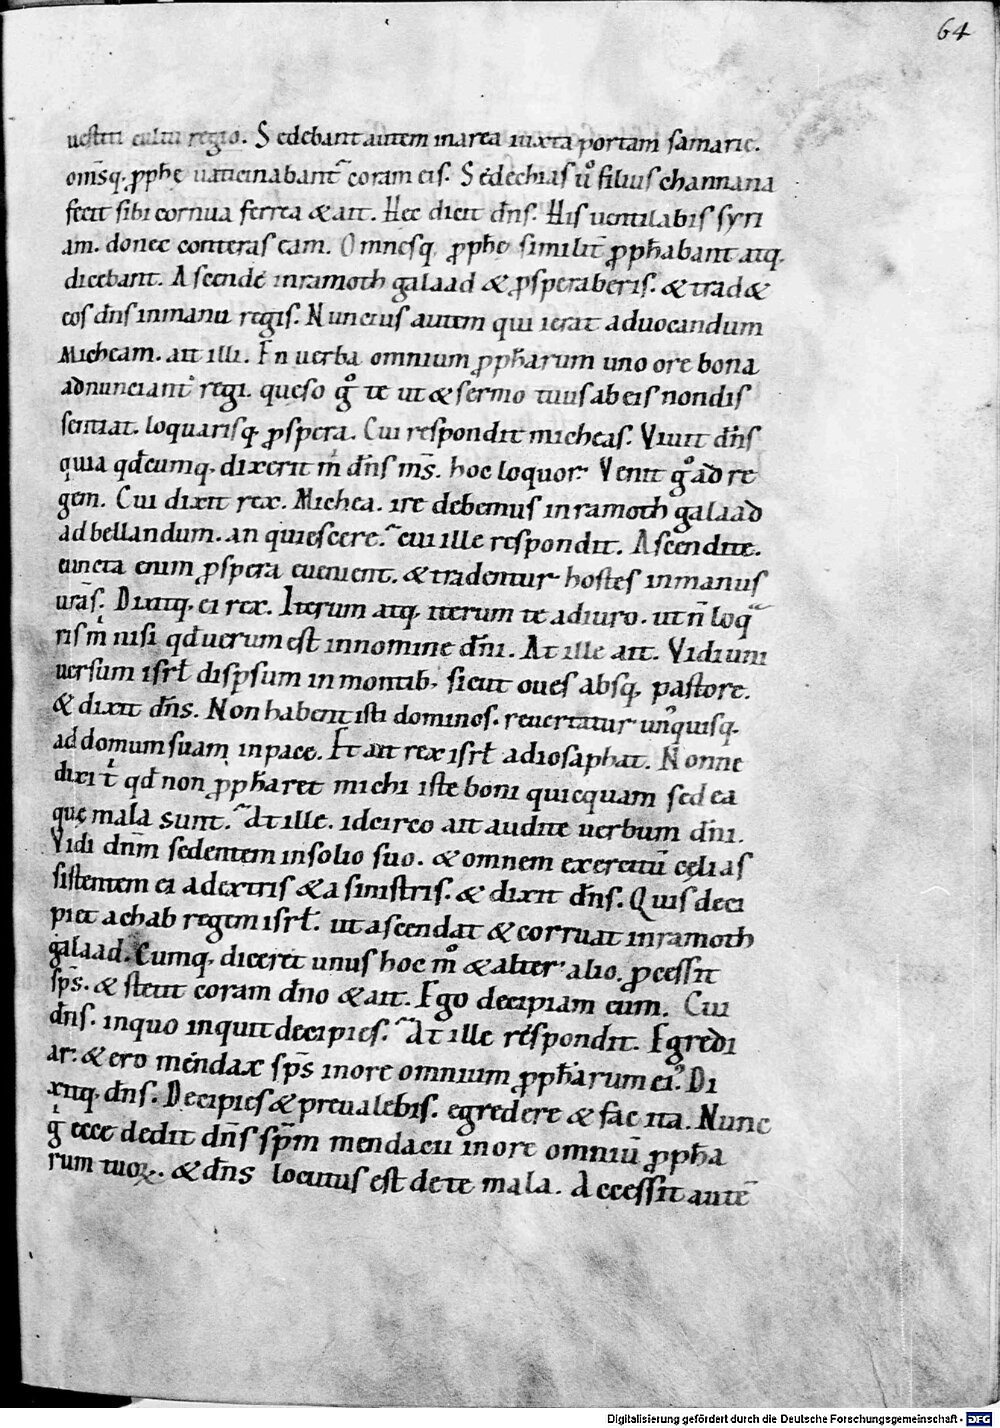 64
uestiti cultu regio. Sedebant autem in area iuxta portam samarie.
om̄sq; ꝓphę uaticinabant̄ coram eis. Sedechias ůo filius channana
fecit sibi cornua ferrea & ait. Hec dicit dn̄s. His uentilabis syri
am. donec conteras eam. Omnesq; ꝓphę similit̄ ꝓph̄abant atq;
dicebant. Ascende in ramoth galaad & ꝓsperaberis. & trad&
eos dn̄s in manu regis. Nuncius autem qui ierat aduocandum
Micheam. ait illi. En uerba omnium ꝓph̄arum uno ore bona
adnunciant regi. queso gͦ te ut & sermo tuus ab eis non dis
sentiat. loquarisq; ꝓspera. Cui respondit micheas. Viuit dn̄s
quia qd̄cumq; dixerit m̍ dn̄s m̄s. hoc loquor. Venit gͦ ad re
gem. Cui dixit rex. Michea. ire debemus in ramoth galaad
ad bellandum. an quiescere. cui ille respondit. Ascendite.
cuncta enim ꝓspera euenient. & tradentur hostes in manus
ur̄as. Dixitq; ei rex. Iterum atq; iterum te adiuro. ut n̄ loq
ris m̍ nisi qd̄ uerum est in nomine dn̄i. At ille ait. Vidi uni
uersum isrł dispsum in montib; sicut oues absq; pastore.
& dixit dn̄s. Non habent isti dominos. reuertatur un̊quisq;
ad domum suam in pace. Et ait rex isrł ad iosaphat. Nonne
dixi t̍ qd̄ non ꝓph̄aret michi iste boni quicquam sed ea
quę mala sunt. At ille. idcirco ait audite uerbum dn̄i.
Vidi dn̄m sedentem in solio suo. & omnem exercitū cęli as
sistentem ei a dextris & a sinistris. & dixit dn̄s. Quis deci
piet achab regem isrł. ut ascendat & corruat in ramoth
galaad. Cumq; diceret unus hoc mͦ & alter alio. ꝓcessit
sp̄s. & stetit coram dn̄o & ait. Ego decipiam eum. Cui
dn̄s. in quo inquit decipies. At ille respondit. Egredi
ar. & ero mendax sp̄s in ore omnium ꝓph̄arum ei᾽. Di
xitq; dn̄s. Decipies & preualebis. egredere & fac ita. Nunc
g̍ ecce dedit dn̄s sp̄m mendacii in ore omniū ꝓph̄a
rum tuoꝝ. & dn̄s locutus est de te mala. Accessit autē
Digitalisierung gefördert durch die Deutsche Forschungsgemeinschaft - DFG